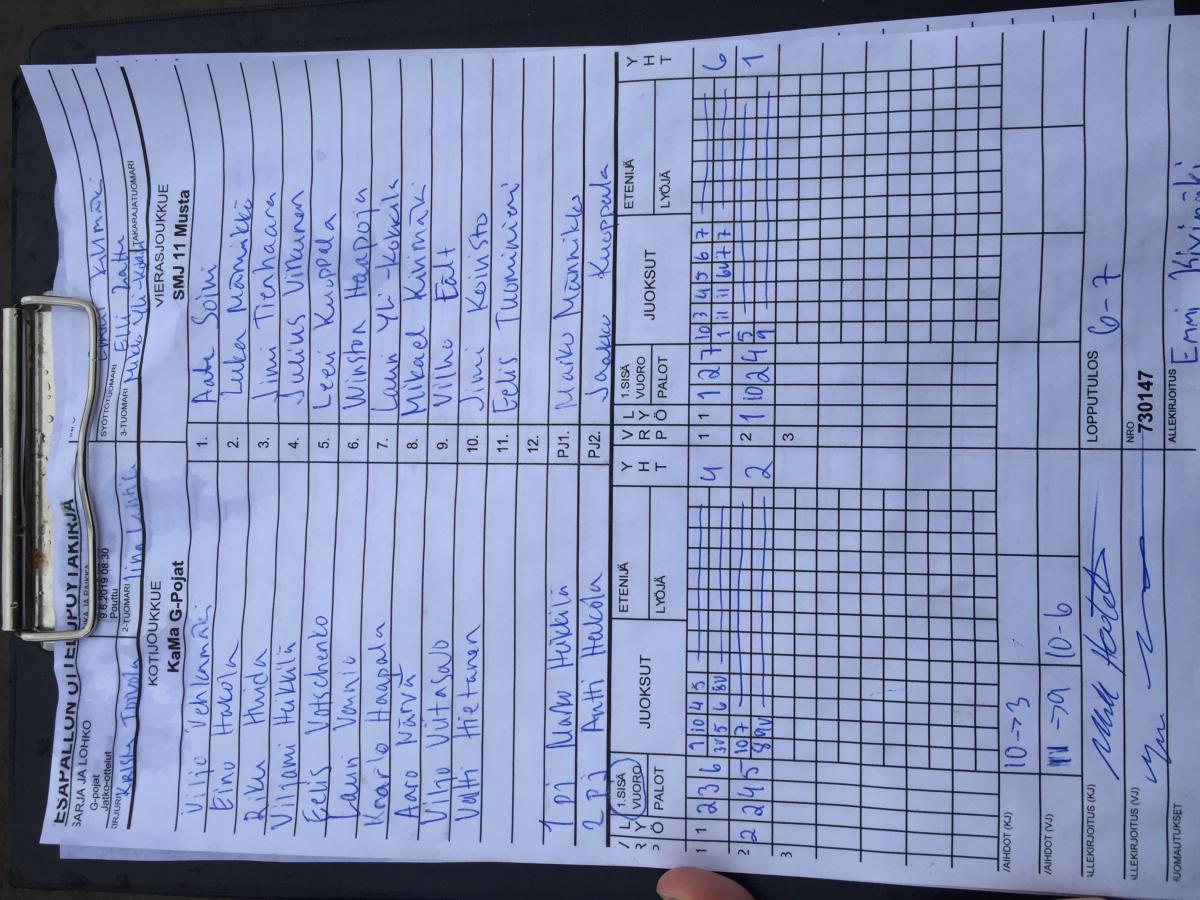 PESÄPALLON OTTELUPÖYTÄKIRJA
SARJA JA LOHKO
G-pojat
Jatko-ottelut
9.6.2019 08:30
Pouttu
KIRJURI
Krista
2-TUOMARI
SYÖTTÖTUOMARI
3-TUOMARI
TAKARAJATUOMARI
KOTIJOUKKUE VIERASJOUKKUE
KaMa G-Pojat SMJ 11 Musta
Viljo Vehkamäki 1. Aatu Soini
Eino Hakola 2. Luka Männikkö
Riku Huida 3. Jimi Tienhaara
Viljami Heikkilä 4. Julius Virkunen
Eelis Votschenko 5. Leevi Kuoppala
Lauri Vainio 6. Winston Haapoja
Knaarlo Haapala 7. Lauri Yli-Kokkila
Aaro Närvä 8. Mikael Kivimäki
Viljo Viitasalo 9. Vilho Fält
Valtti Hietanen 10. Jimi Koivisto
11. Eelis Tuominiemi
12.
1 PJ Marko Heikkilä PJ1. Marko Männikkö
2 PJ Antti Hakola PJ2. Jaakko Kuoppala
V R P L Y Ö 1.SISÄ VUORO PALOT JUOKSUT ETENIJÄ LYÖJÄ Y H T V R P L Y Ö 1.SISÄ VUORO PALOT JUOKSUT ETENIJÄ LYÖJÄ Y H T
1 1 2 3 6 1 10 4 5 4 1 1 1 2 7 10 3 4 5 6 7 6
3V 5 6 8V 1 11 11 6V 7 7
2 2 2 4 5 10 7 2 2 1 10 2 4 5 1
8 9V 9
3 3
VAIHDOT (KJ) 10->3
VAIHDOT (VJ) ->9 10-6
ALLEKIRJOITUS (KJ) LOPPUTULOS 6-7
ALLEKIRJOITUS (VJ) NRO 730147
HUOMAUTUKSET ALLEKIRJOITUS Emmi Kivimäki